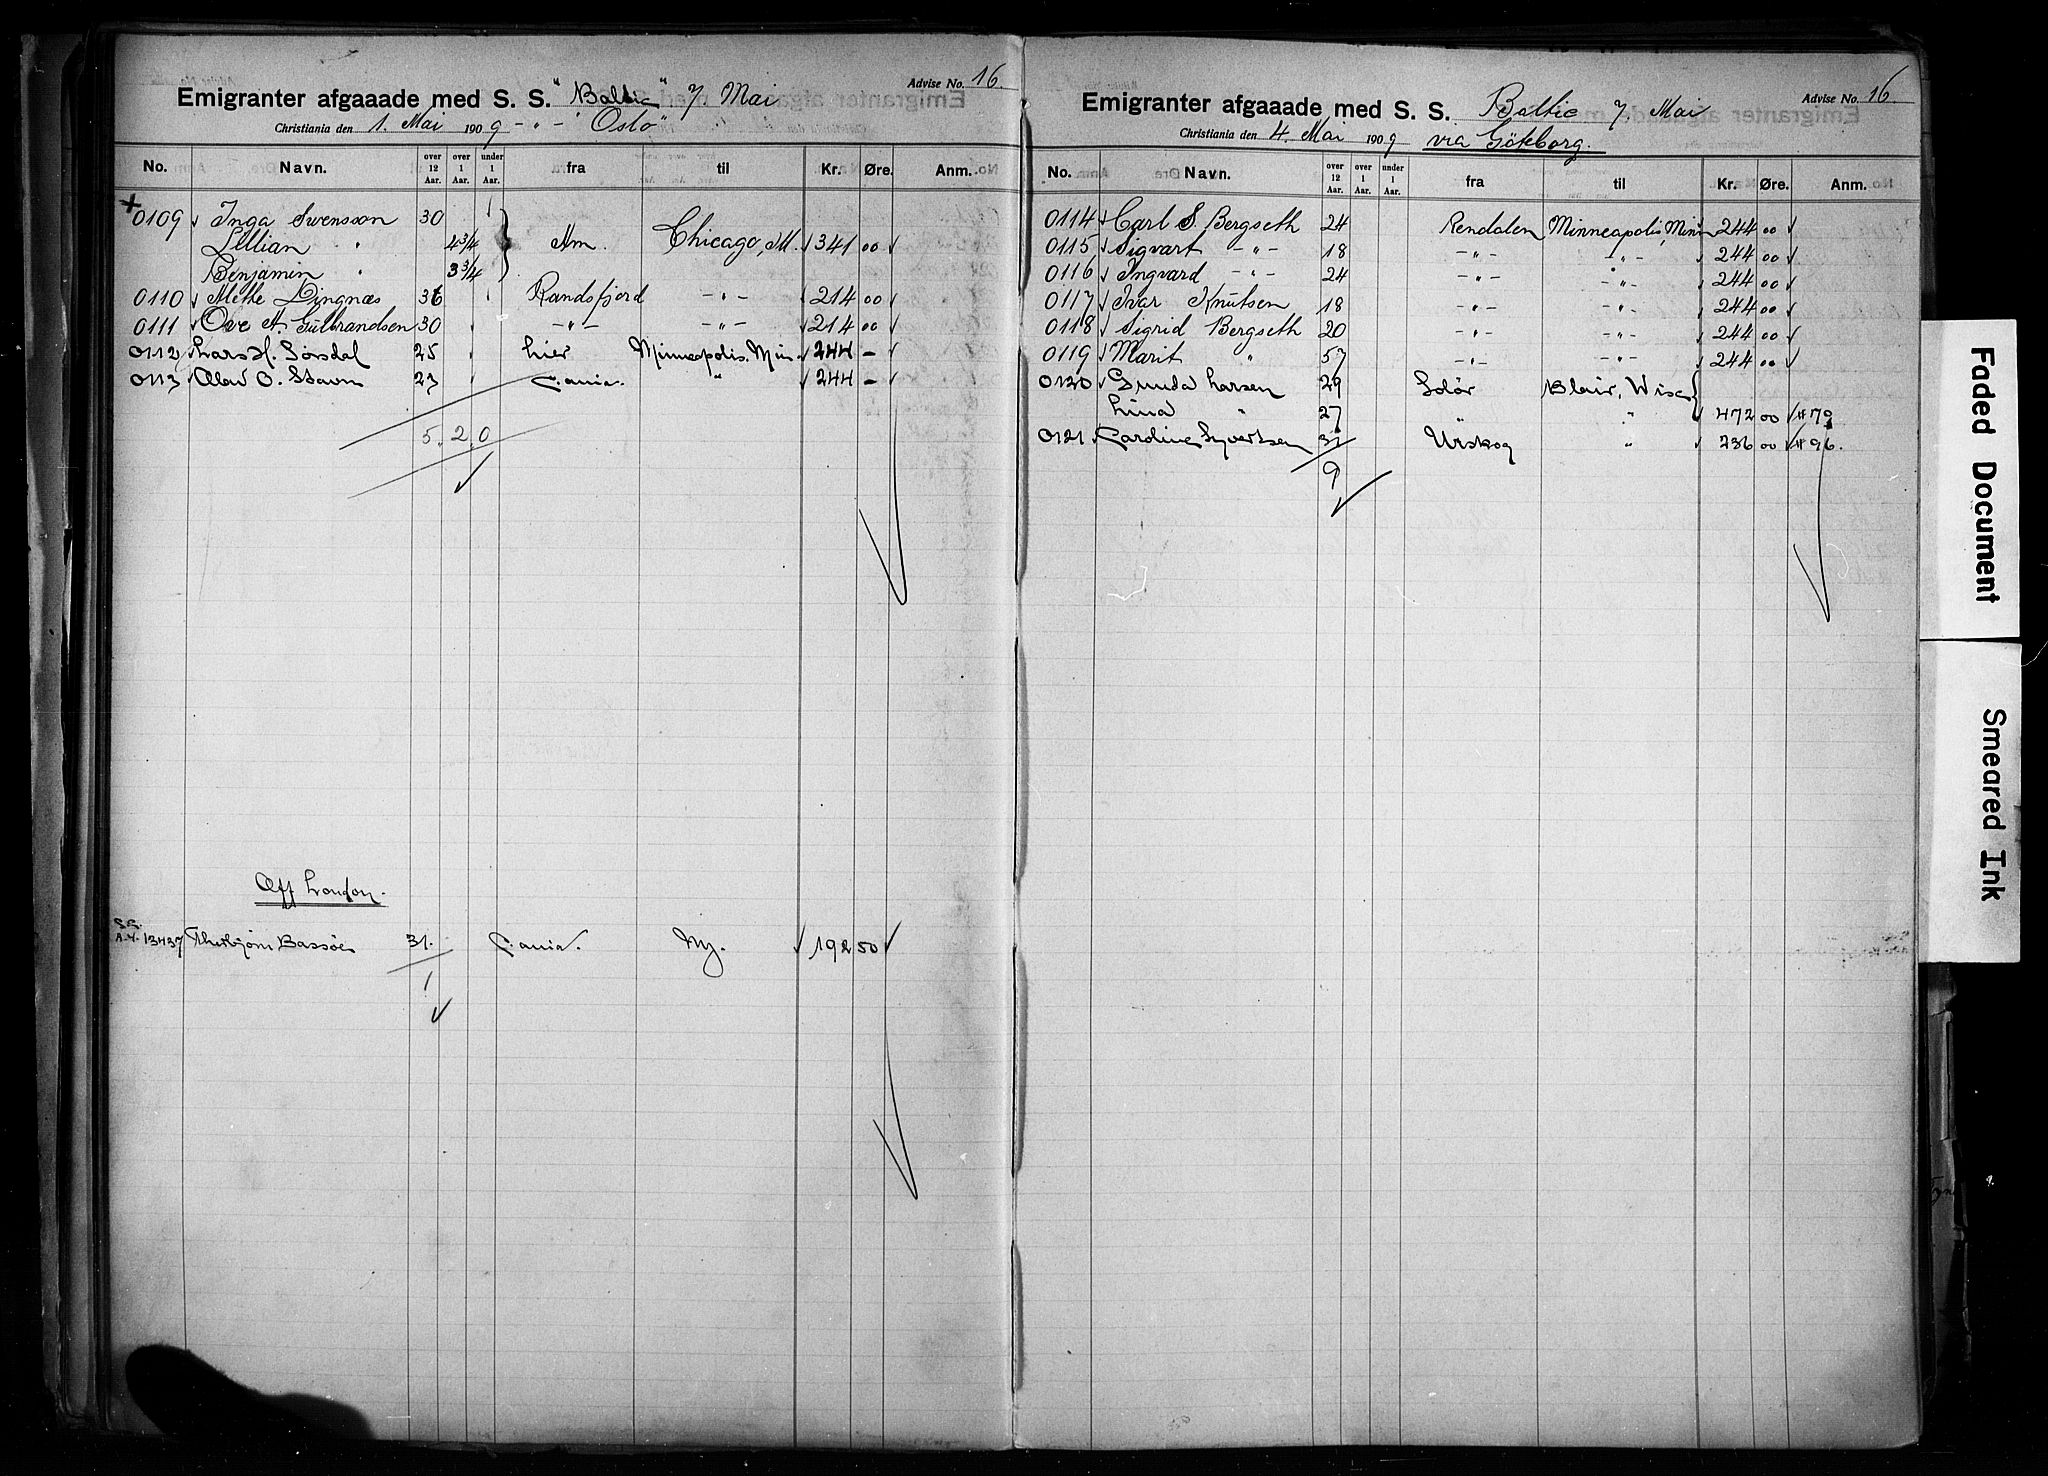 Advise No. 16.
Emigranter afgaaade med S. S. "Baltic" 7 Mai
Christiania den 1. Mai 1909 - " - "Oslo"
No. Navn. over 12 Aar. over 1 Aar. under 1 Aar. fra til Kr. Øre. Anm.
0109 Inga Svensson 30
Lillian " 4 3/4 Am. Chicago, Ill. 341 00
Benjamin " 3 3/4
0110 Methe Lingnæs 36 Randsfjord - " - 214 00
0111 Ove A. Gulbrandsen 30 - " - - " - 214 00
0112 Lars H. Sørsdal 25 Lier Minneapolis. Min 244 -
0113 Olav O. Stavn 23 C.ania. " 244 -
5. 2. 0
Off London.
S.S.
A.4. 13437 Thorbjørn Bassøe 31. C.ania. Ny. 192 50
1
Advise No. 16.
Emigranter afgaaade med S. S. Baltic 7. Mai
Christiania den 4. Mai 1909 via Göteborg.
No. Navn. over 12 Aar. over 1 Aar. under 1 Aar. fra til Kr. Øre. Anm.
0114 Carl S. Bergseth 24 Rendalen Minneapolis, Minn 244 00
0115 Sigvart - " - 18 - " - - " - 244 00
0116 Ingvard - " - 24 - " - - " - 244 00
0117 Ivar Knutsen 18 - " - - " - 244 00
0118 Sigrid Bergseth 20 - " - - " - 244 00
0119 Marit " 57 - " - - " - 244 00
0120 Gunda Larsen 29 Solør Blair, Wisc
Lina " 27 " 472 00 #79
0121 Caroline Syvertsen 31 Urskog " 236 00 #96.
9
Faded Document
Smeared Ink